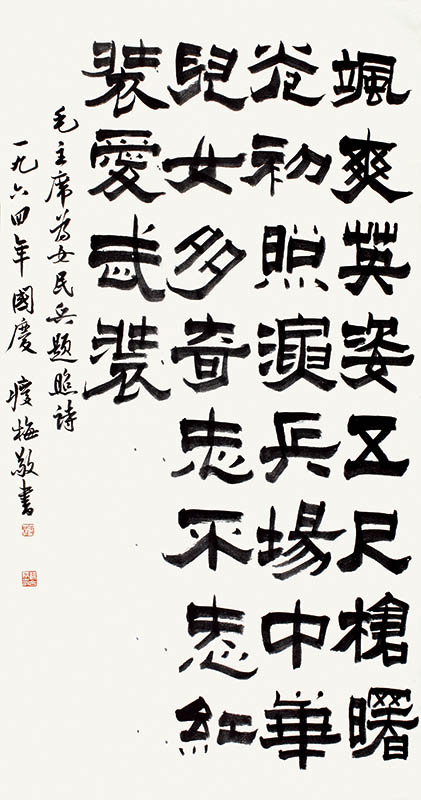 颯爽英姿五尺槍曙
光初照演兵場中華
兒女多奇志不㤅紅
裝愛武裝
毛主席為女民兵題照詩
一九六四年國慶 瘦梅敬書